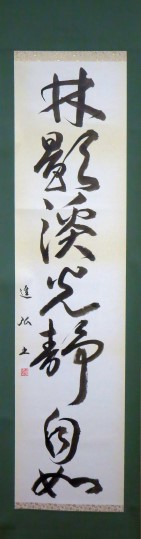 林影溪光静自如
進弘上